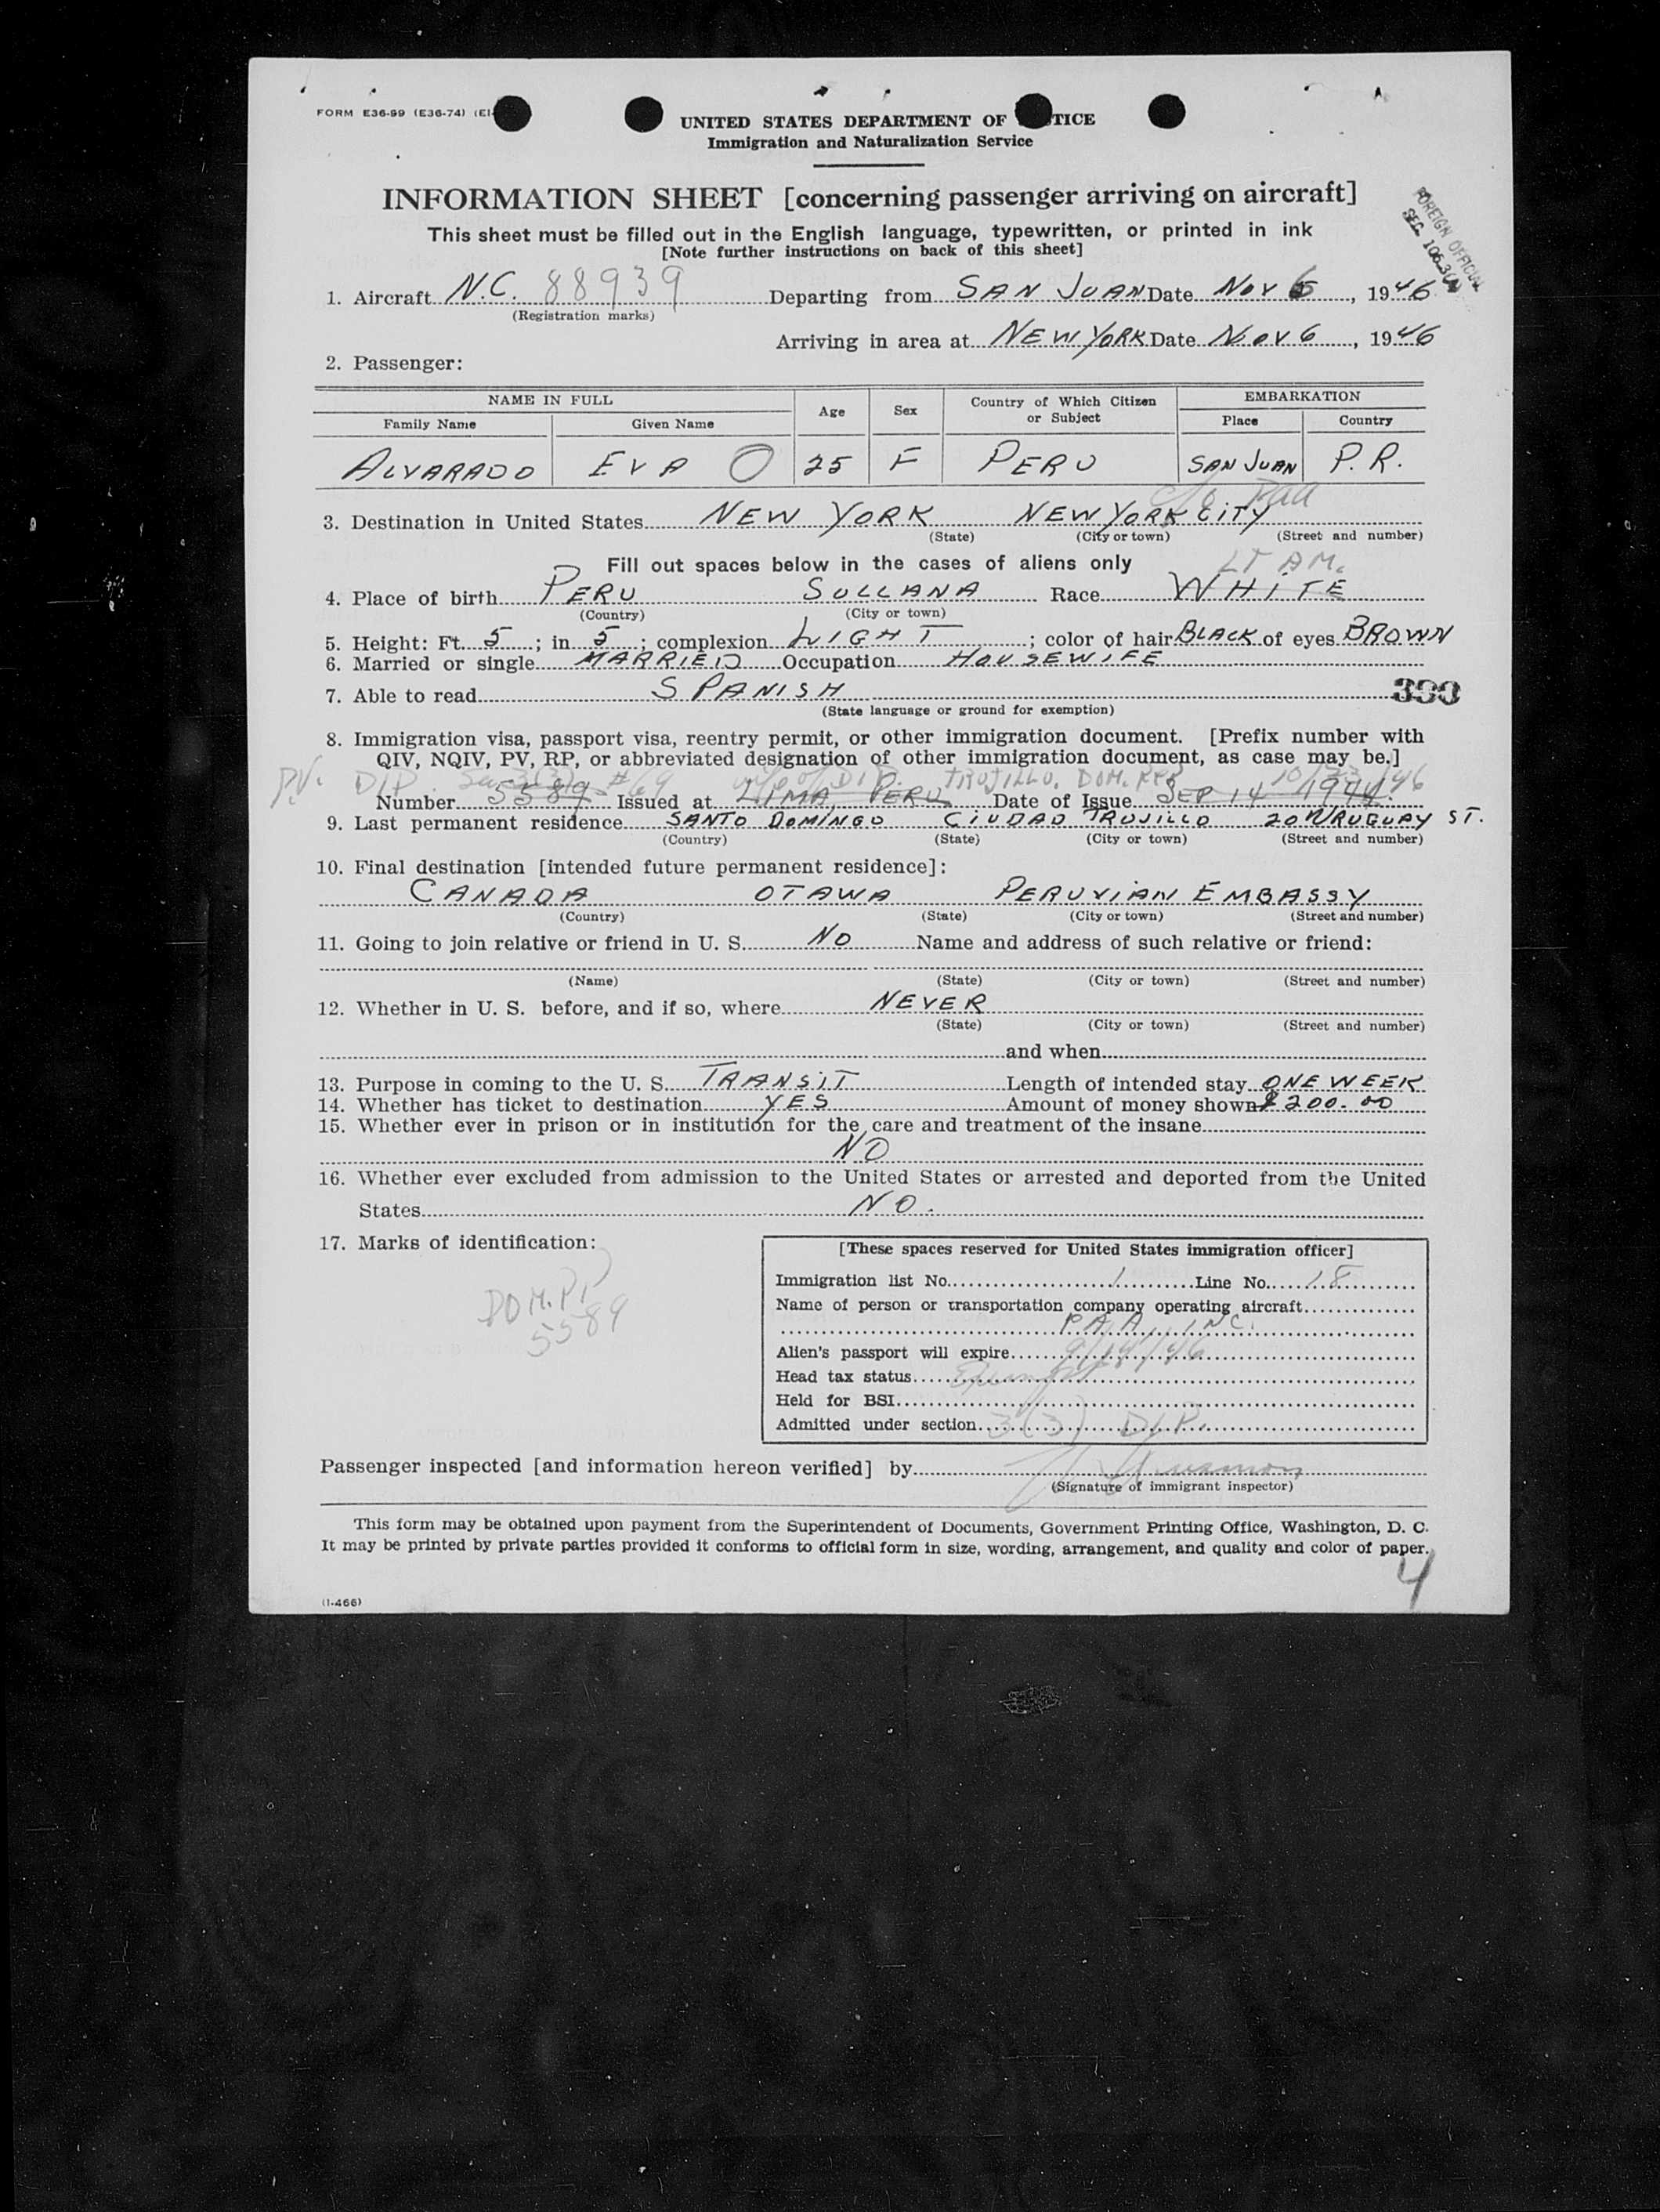 FORM E36-99 (E36-74) (EI-
UNITED STATES DEPARTMENT OF TICE
Immigration and Naturalization Service
INFORMATION SHEET [concerning passenger arriving on aircraft]
FOREIGN OFFICIAL
SEC. 106.3
This sheet must be filled out in the English language, typewritten, or printed in ink
[Note further instructions on back of this sheet]
1. Aircraft N.C. 88939 Departing from SAN JUAN Date NOV 6, 1946
(Registration marks)
Arriving in area at NEW YORK Date NOV 6, 1946
2. Passenger:
NAME IN FULL Age Sex Country of Which Citizen or Subject EMBARKATION
Family Name Given Name Place Country
ALVARADO EVA O 25 F PERU SAN JUAN P.R.
3. Destination in United States NEW YORK NEW YORK CITY
(State) (City or town) (Street and number)
Fill out spaces below in the cases of aliens only LT AM.
4. Place of birth PERU SULLANA Race WHITE
(Country) (City or town)
5. Height: Ft. 5; in 5; complexion LIGHT; color of hair BLACK of eyes BROWN
6. Married or single MARRIED Occupation HOUSEWIFE
7. Able to read SPANISH 390
(State language or ground for exemption)
8. Immigration visa, passport visa, reentry permit, or other immigration document. [Prefix number with
QIV, NQIV, PV, RP, or abbreviated designation of other immigration document, as case may be.]
PV. DIP. Sec 3(3) #69 TRUJILLO, DOM. REP.
Number 5589 Issued at LIMA, PERU Date of Issue SEP 14 1944.
9. Last permanent residence SANTO DOMINGO CIUDAD TRUJILLO 20 URUGUAY ST.
(Country) (State) (City or town) (Street and number)
10. Final destination [intended future permanent residence]:
CANADA OTAWA PERUVIAN EMBASSY
(Country) (State) (City or town) (Street and number)
11. Going to join relative or friend in U. S. NO Name and address of such relative or friend:
(Name) (State) (City or town) (Street and number)
12. Whether in U. S. before, and if so, where NEVER
(State) (City or town) (Street and number)
and when
13. Purpose in coming to the U. S. TRANSIT Length of intended stay ONE WEEK
14. Whether has ticket to destination YES Amount of money shown $200.00
15. Whether ever in prison or in institution for the care and treatment of the insane
NO
16. Whether ever excluded from admission to the United States or arrested and deported from the United
States NO.
17. Marks of identification:
DOM. PP
5589
[These spaces reserved for United States immigration officer]
Immigration list No. 1 Line No. 18
Name of person or transportation company operating aircraft
P.A.A., INC.
Alien's passport will expire 9/14/46
Head tax status
Held for BSI
Admitted under section 3(3) DIP.
Passenger inspected [and information hereon verified] by
(Signature of immigrant inspector)
This form may be obtained upon payment from the Superintendent of Documents, Government Printing Office, Washington, D. C.
It may be printed by private parties provided it conforms to official form in size, wording, arrangement, and quality and color of paper.
4
(I-466)